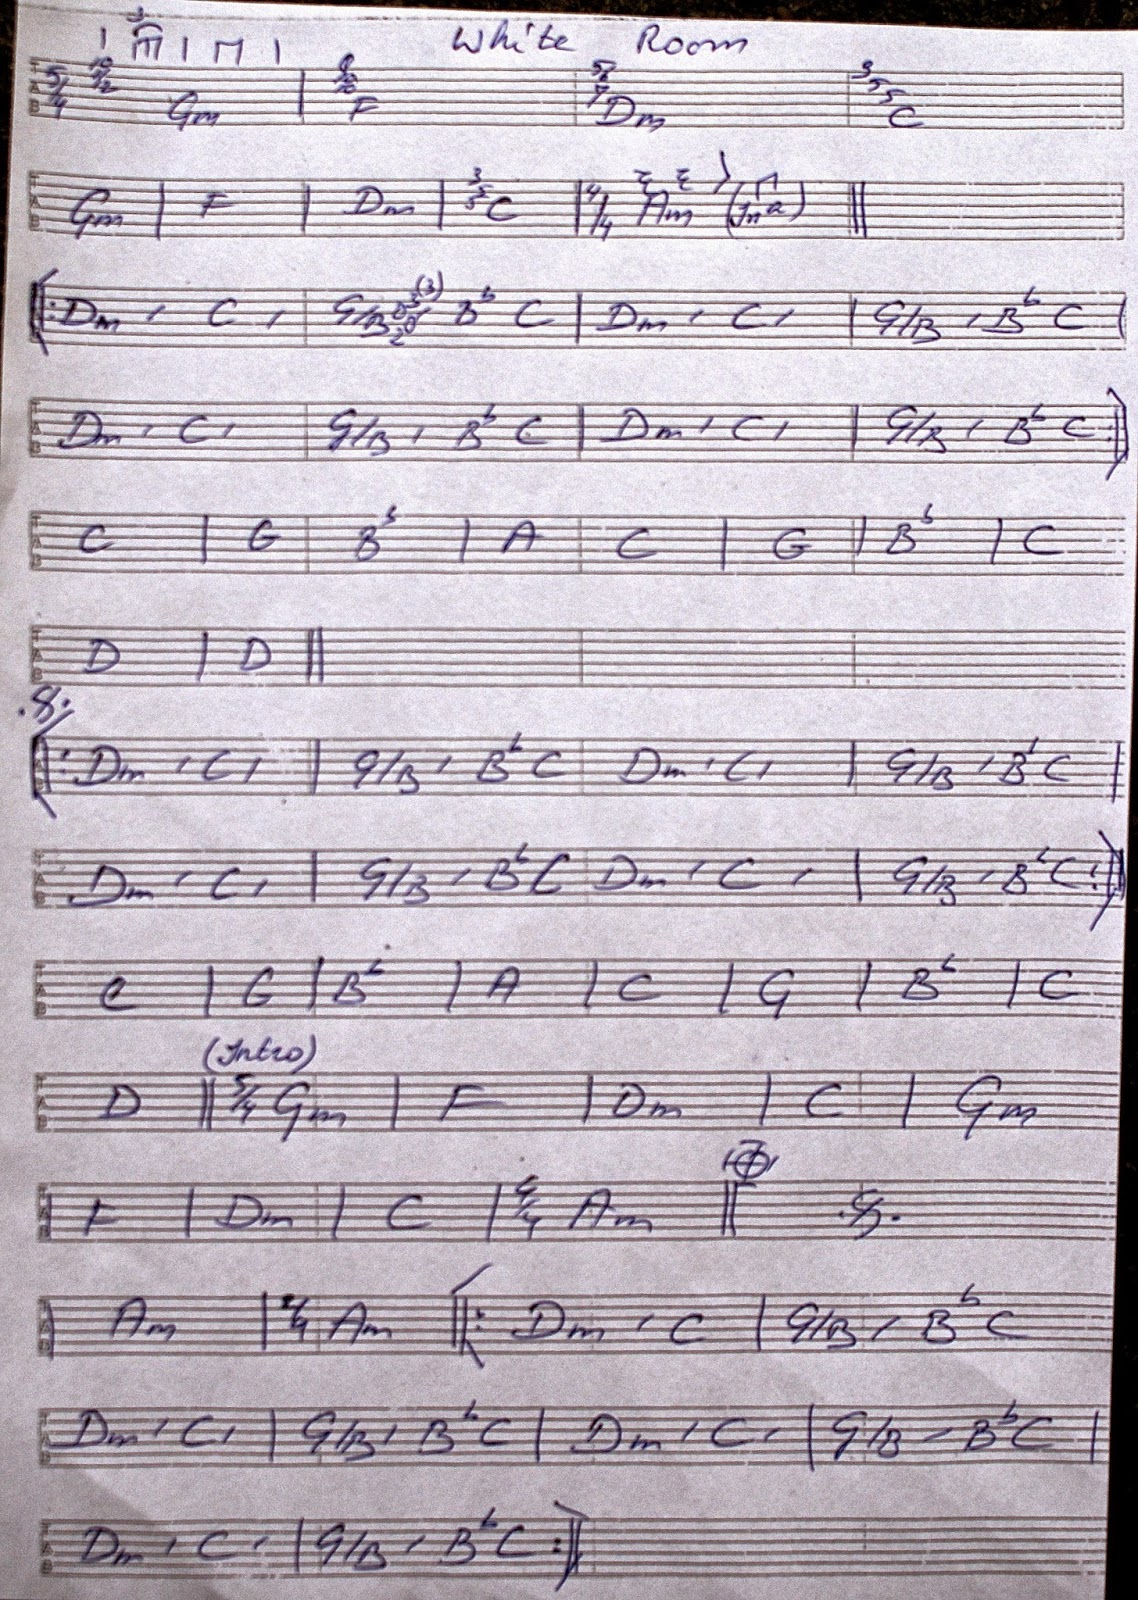 White Room
5/4 10 12 Gm | 8 10 F | 5 6 7 Dm | 3 5 5 C
Gm | F | Dm | 3 5 5 C | 4/4 Am ||
|: Dm ' C ' | G/B 2 0 0 3 (3) B♭ C | Dm ' C ' | G/B ' B♭ C
Dm ' C ' | G/B ' B♭ C | Dm ' C ' | G/B ' B♭ C :|
C | G | B♭ | A | C | G | B♭ | C
D | D ||
|: Dm ' C ' | G/B ' B♭ C | Dm ' C ' | G/B ' B♭ C |
Dm ' C ' | G/B ' B♭ C | Dm ' C ' | G/B ' B♭ C :|
C | G | B♭ | A | C | G | B♭ | C
(Intro)
D || 5/4 Gm | F | Dm | C | Gm
F | Dm | C | 4/4 Am ||
Am | 2/4 Am |: Dm ' C | G/B ' B♭ C
Dm ' C ' | G/B ' B♭ C | Dm ' C ' | G/B ' B♭ C |
Dm ' C ' | G/B ' B♭ C :|